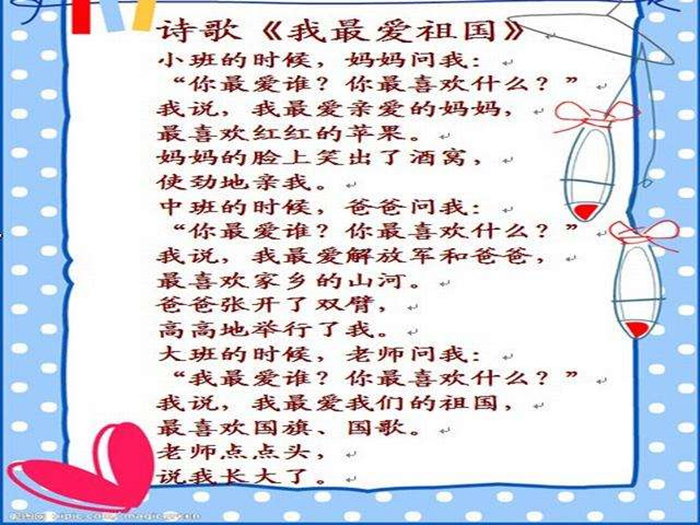 诗歌《我最爱祖国》
小班的时候，妈妈问我：
“你最爱谁？你最喜欢什么？”
我说，我最爱亲爱的妈妈，
最喜欢红红的苹果。
妈妈的脸上笑出了酒窝，
使劲地亲我。
中班的时候，爸爸问我：
“你最爱谁？你最喜欢什么？”
我说，我最爱解放军和爸爸，
最喜欢家乡的山河。
爸爸张开了双臂，
高高地举行了我。
大班的时候，老师问我：
“我最爱谁？你最喜欢什么？”
我说，我最爱我们的祖国，
最喜欢国旗、国歌。
老师点点头，
说我长大了。